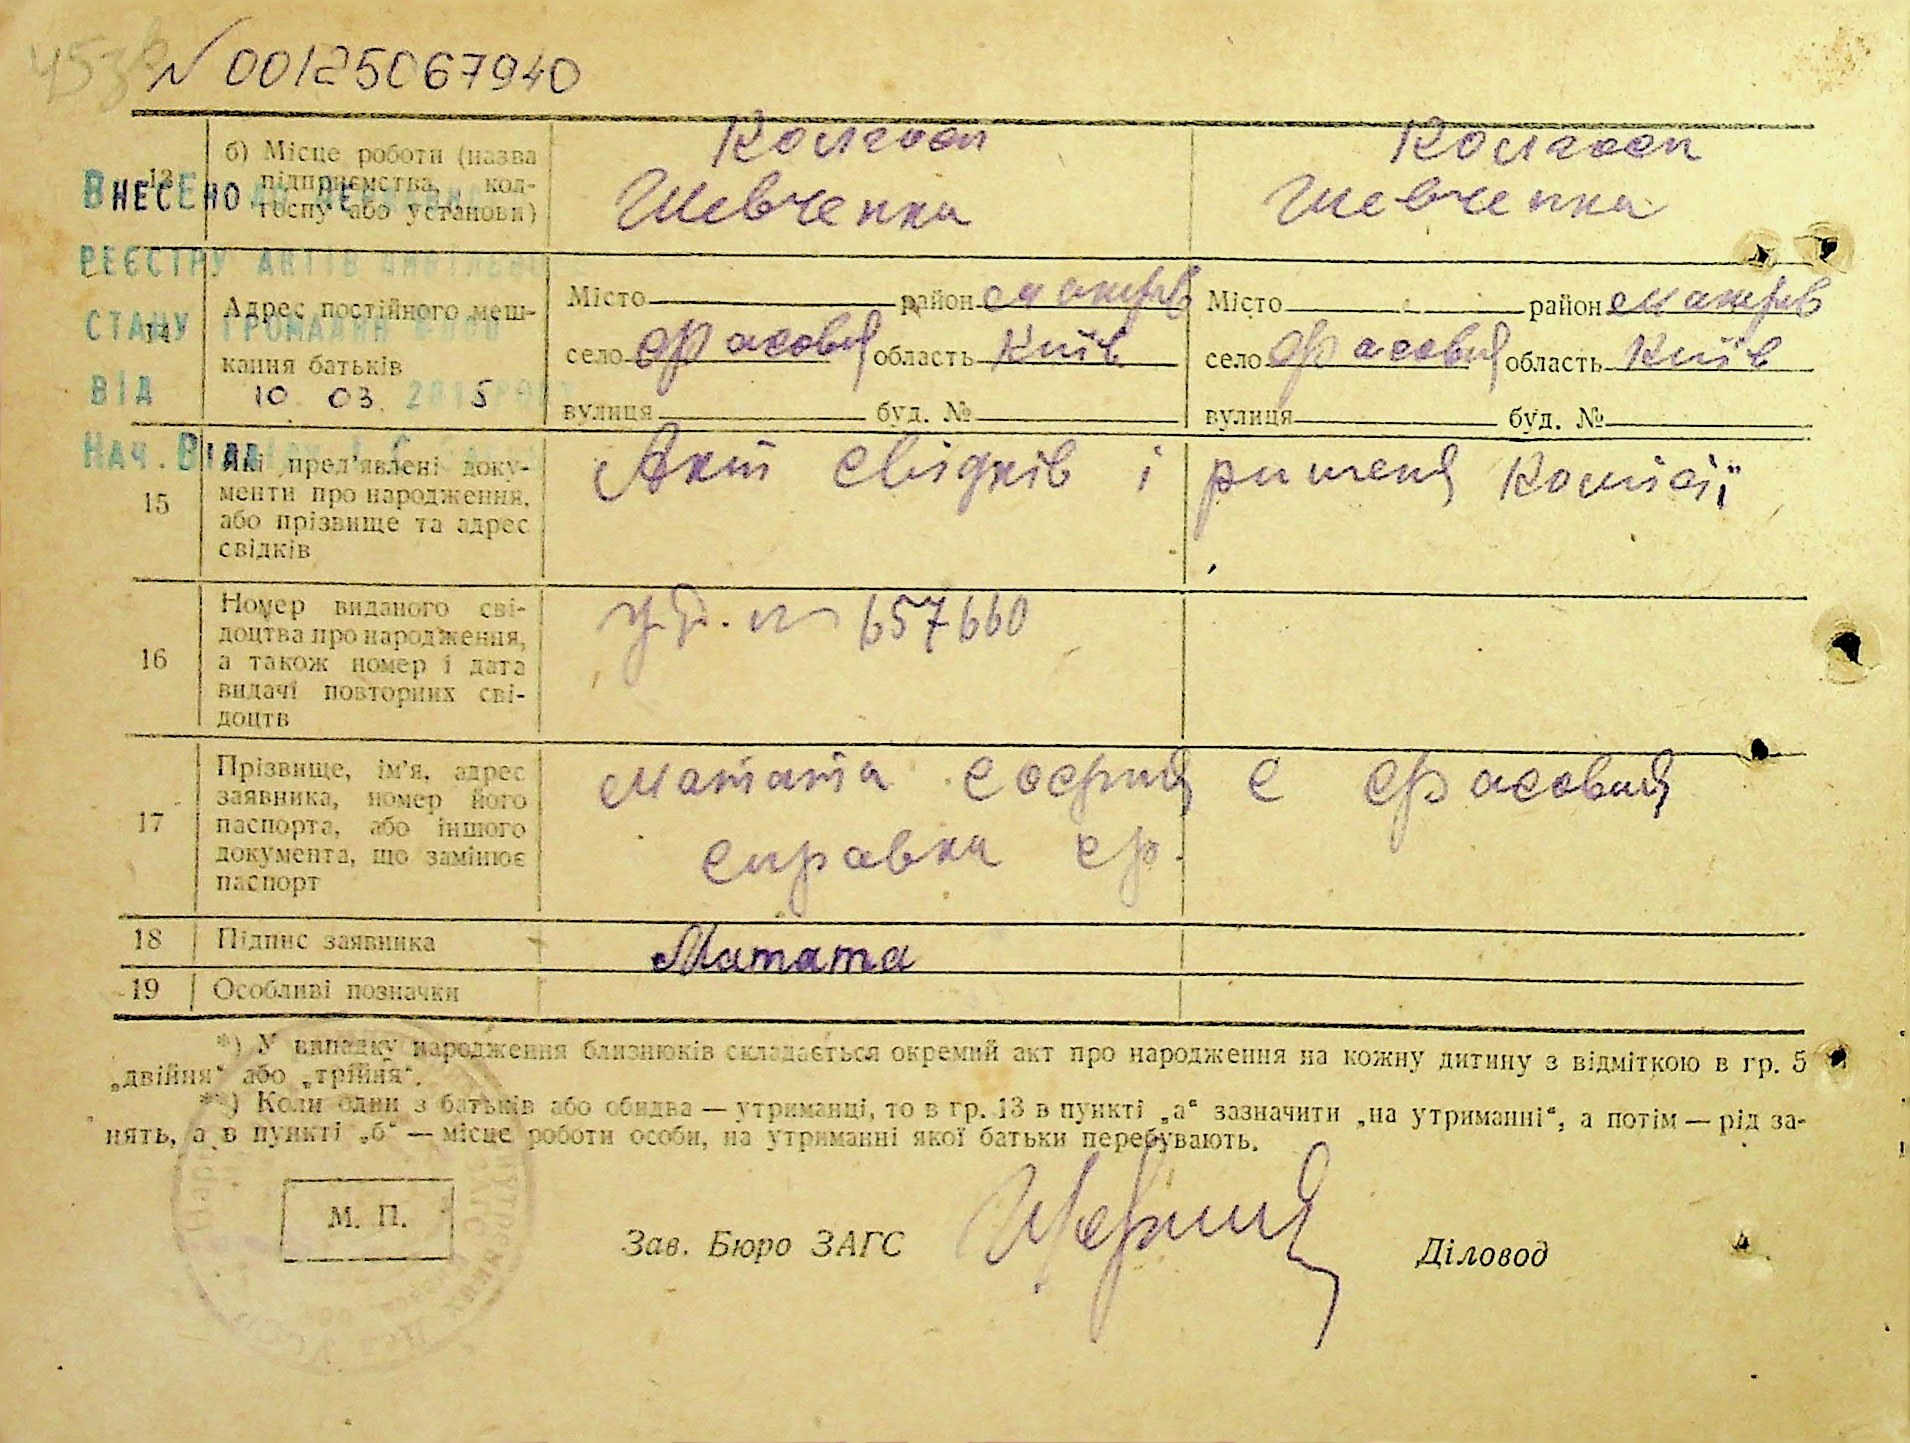 № 00125067940
13
б) Місце роботи (назва
підприємства, кол-
госпу або установи)
Колгосп
Шевченка
Колгосп
Шевченка
ВНЕСЕНО ДО ДЕРЖАВНОГО
РЕЄСТРУ АКТІВ ЦИВІЛЬНОГО
СТАНУ ГРОМАДЯН
ВІД 10 03 2015 РОКУ
НАЧ. ВІДДІЛУ
14
Адрес постійного меш-
кання батьків
Місто район Макарів
село Фасовая область Київ
вулиця буд. №
Місто район Макарів
село Фасовая область Київ
вулиця буд. №
15
Які пред'явлені доку-
менти про народження,
або прізвище та адрес
свідків
Акт свідків і ришеня Комісії
16
Номер виданого сві-
доцтва про народження,
а також номер і дата
видачі повторних сві-
доцтв
№ 657660
17
Прізвище, ім'я, адрес
заявника, номер його
паспорта, або іншого
документа, що замінює
паспорт
Матата Софія с Фасовая
справка
18
Підпис заявника
Матата
19
Особливі позначки
*) У випадку народження близнюків складається окремий акт про народження на кожну дитину з відміткою в гр. 5
„двійня“ або „трійня“.
**) Коли один з батьків або обидва — утриманці, то в гр. 13 в пункті „а“ зазначити „на утриманні“, а потім — рід за-
нять, а в пункті „б“ — місце роботи особи, на утриманні якої батьки перебувають.
М. П.
Зав. Бюро ЗАГС
Діловод